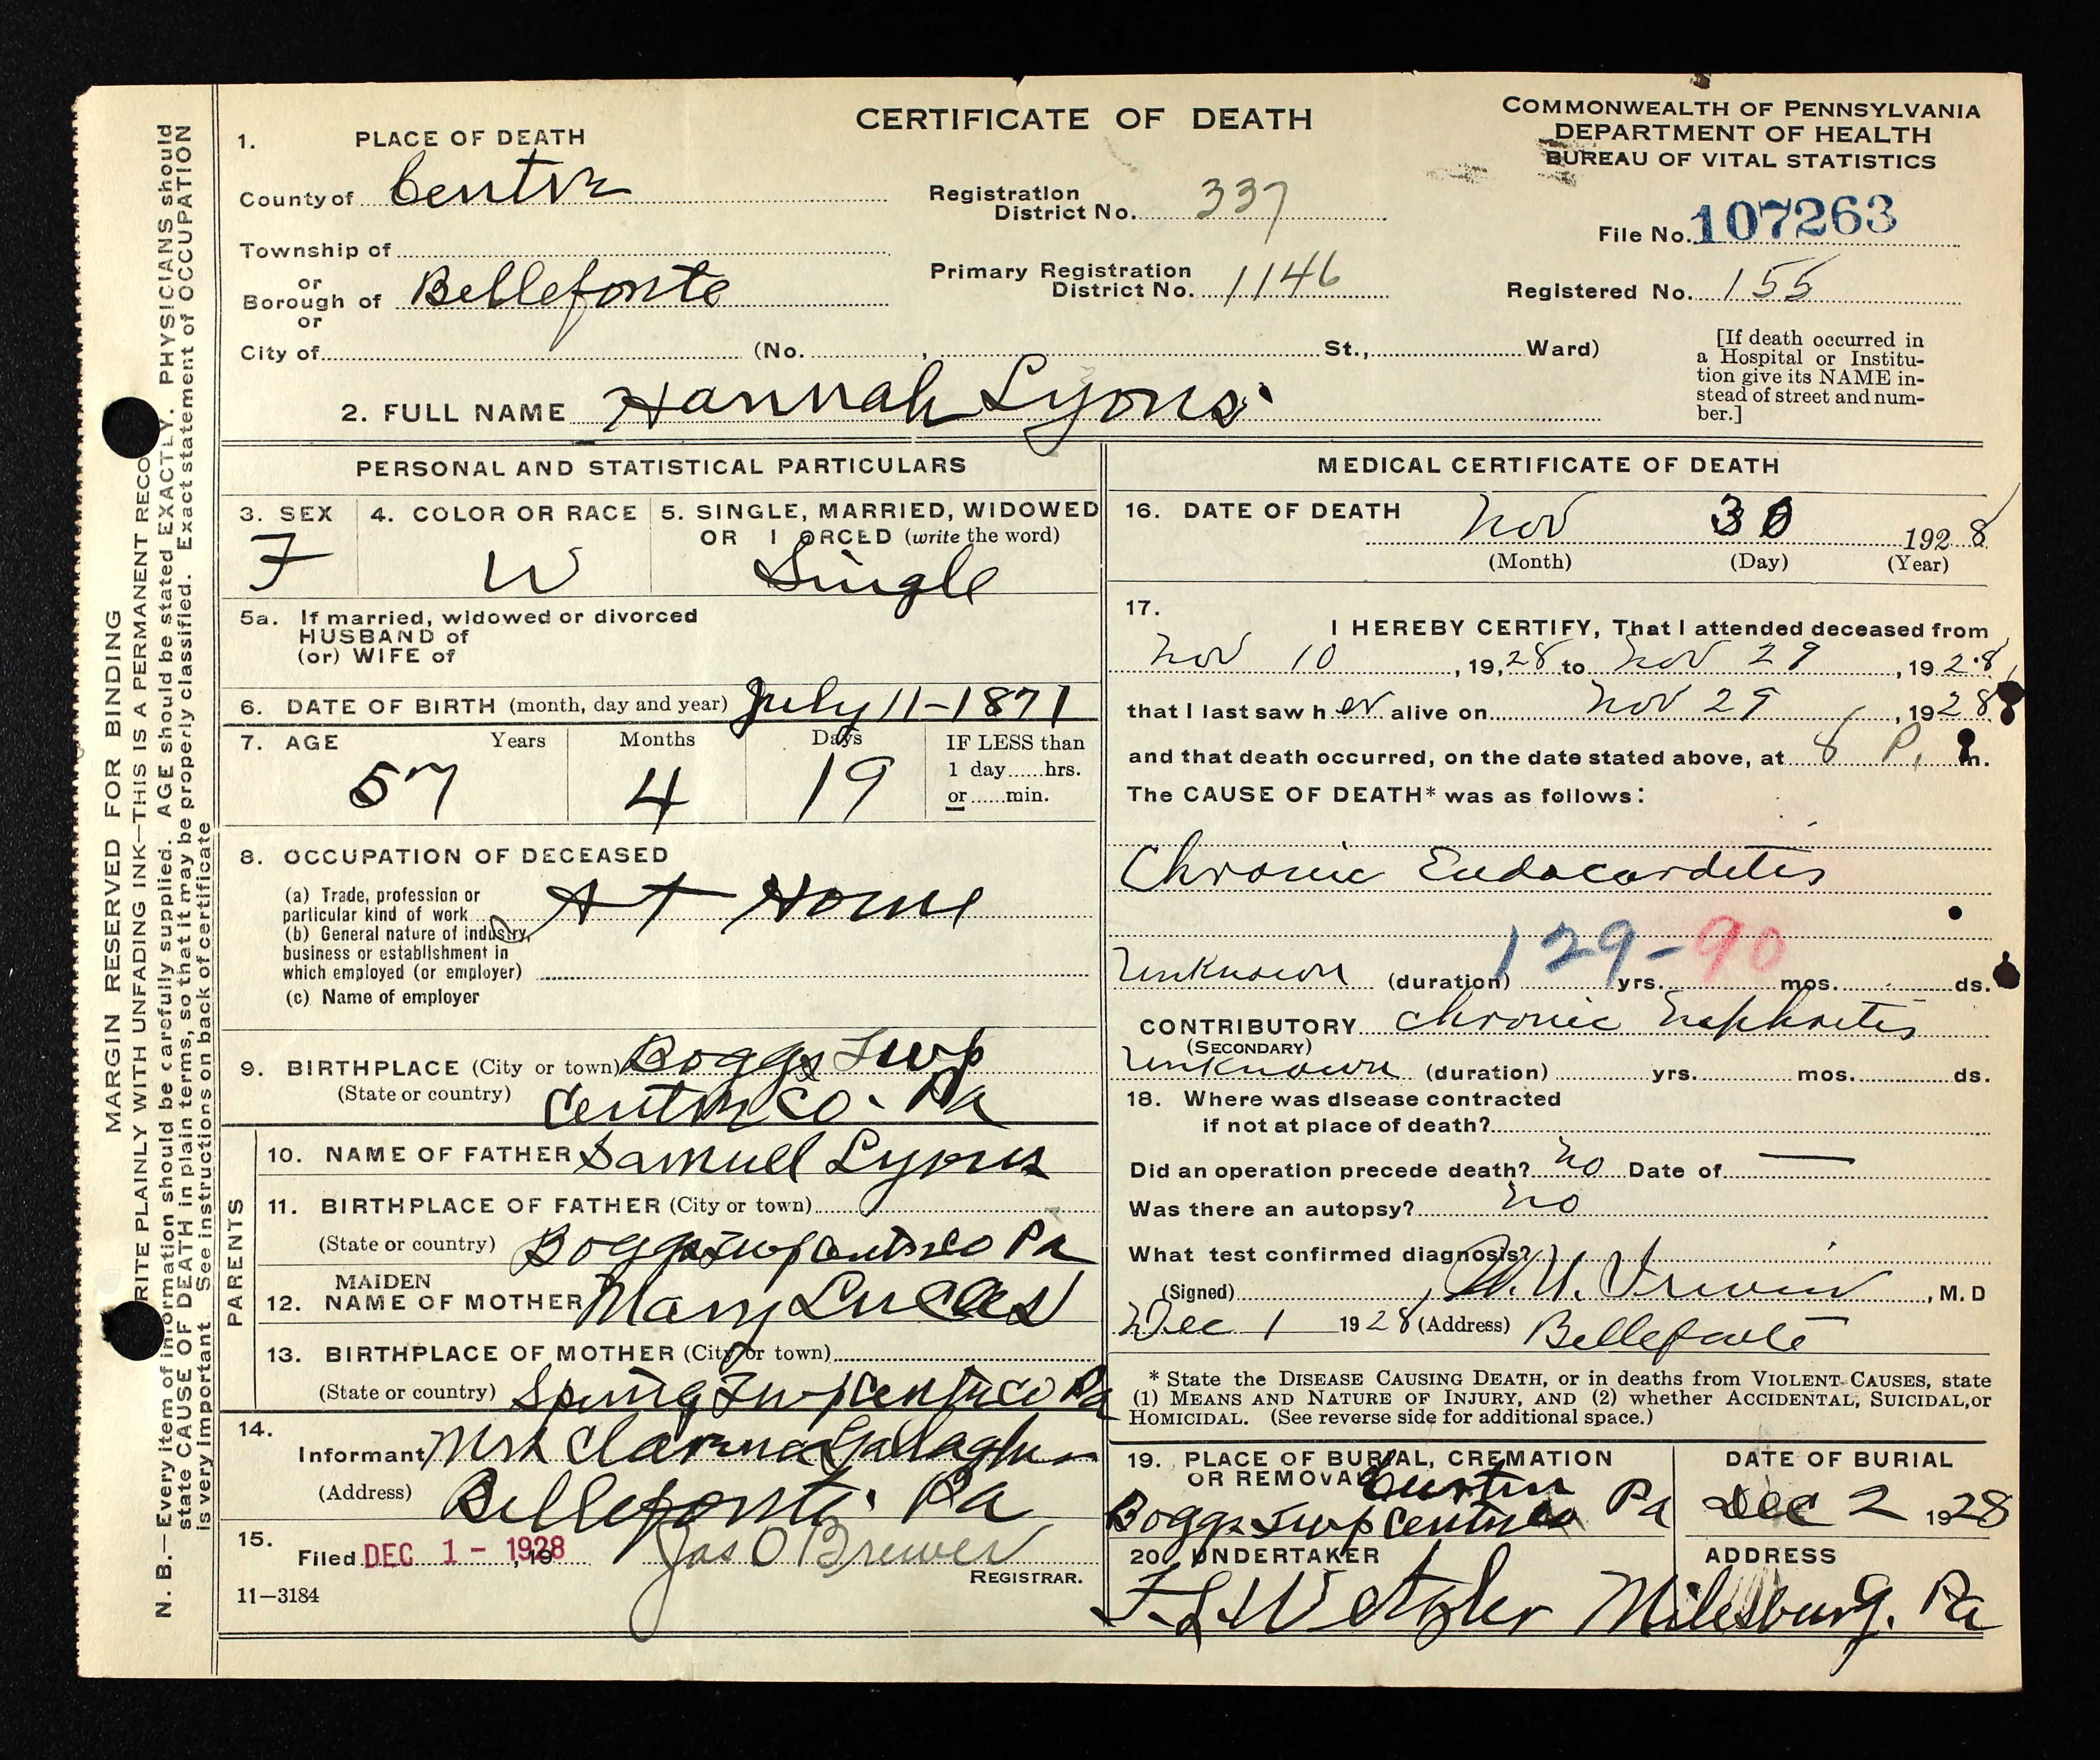 CERTIFICATE OF DEATH
COMMONWEALTH OF PENNSYLVANIA
DEPARTMENT OF HEALTH
BUREAU OF VITAL STATISTICS
1. PLACE OF DEATH
County of Centre
Registration District No. 337
File No. 107263
Township of
or
Borough of Bellefonte
or
Primary Registration District No. 1146
Registered No. 155
City of (No. , St., Ward)
[If death occurred in a Hospital or Institution give its NAME instead of street and number.]
2. FULL NAME Hannah Lyons
PERSONAL AND STATISTICAL PARTICULARS
3. SEX F
4. COLOR OR RACE W
5. SINGLE, MARRIED, WIDOWED OR DIVORCED (write the word) Single
5a. If married, widowed or divorced
HUSBAND of
(or) WIFE of
6. DATE OF BIRTH (month, day and year) July 11-1871
7. AGE Years 57 Months 4 Days 19
IF LESS than
1 day......hrs.
or......min.
8. OCCUPATION OF DECEASED
(a) Trade, profession or
particular kind of work At Home
(b) General nature of industry,
business or establishment in
which employed (or employer)
(c) Name of employer
9. BIRTHPLACE (City or town) Boggs Twp
(State or country) Centre Co. Pa
PARENTS
10. NAME OF FATHER Samuel Lyons
11. BIRTHPLACE OF FATHER (City or town)
(State or country) Boggs Twp Centre Co Pa
12. MAIDEN NAME OF MOTHER Mary Lucas
13. BIRTHPLACE OF MOTHER (City or town)
(State or country) Spring Twp Centre Co Pa
14.
Informant Mrs Gallagher
(Address) Bellefonte. Pa
15.
Filed DEC 1 - 1928 Jas O Brewer
REGISTRAR.
11-3184
MEDICAL CERTIFICATE OF DEATH
16. DATE OF DEATH Nov 30 1928
(Month) (Day) (Year)
17.
I HEREBY CERTIFY, That I attended deceased from
Nov 10, 1928 to Nov 29, 1928,
that I last saw her alive on Nov 29, 1928
and that death occurred, on the date stated above, at 8 P. m.
The CAUSE OF DEATH* was as follows:
Chronic Endocarditis
129-90
Unknown (duration) yrs. mos. ds.
CONTRIBUTORY Chronic Nephritis
(SECONDARY)
Unknown (duration) yrs. mos. ds.
18. Where was disease contracted
if not at place of death?
Did an operation precede death? No Date of —
Was there an autopsy? No
What test confirmed diagnosis?
(Signed) Irwin, M. D
Dec 1 1928 (Address) Bellefonte
* State the DISEASE CAUSING DEATH, or in deaths from VIOLENT CAUSES, state
(1) MEANS AND NATURE OF INJURY, AND (2) whether ACCIDENTAL, SUICIDAL, or
HOMICIDAL. (See reverse side for additional space.)
19. PLACE OF BURIAL, CREMATION
OR REMOVAL Curtin
Boggs Twp Centre Co Pa
DATE OF BURIAL
Dec 2 1928
20. UNDERTAKER
F L Wetzler
ADDRESS
Milesburg. Pa
MARGIN RESERVED FOR BINDING
RITE PLAINLY WITH UNFADING INK—THIS IS A PERMANENT RECO
N. B.—Every item of information should be carefully supplied. AGE should be stated EXACTLY. PHYSICIANS should
state CAUSE OF DEATH in plain terms, so that it may be properly classified. Exact statement of OCCUPATION
is very important. See instructions on back of certificate